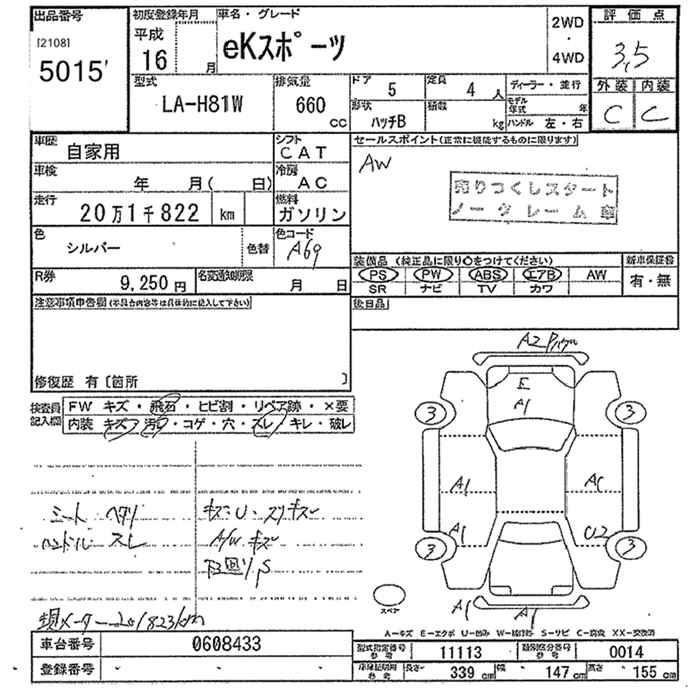 出品番号
[2108]
5015'
初度登録年月
平成
16 月
車名・グレード
eKスポーツ
2WD
・
4WD
評価点
3,5
外装 内装
C C
型式
LA-H81W
排気量
660 CC
ドア 5
定員 4 人
ディーラー・並行
形状 ハッチB
積数 kg
モデル年式 年
ハンドル 左・右
車歴
自家用
シフト
CAT
車検
年 月( 日)
冷房
AC
走行
20万1千822 km
燃料
ガソリン
色
シルバー
色替
色コード
A69
R券
9,250円
名変通知期限
月 日
セールスポイント(正常に機能するものに限ります)
AW
売りつくしスタート
ノークレーム車
装備品 (純正品に限り○をつけてください)
PS PW ABS エアB AW
SR ナビ TV カワ
新車保証書
有・無
後日品
注意事項申告欄(不具合内容等は具体的に記入して下さい)
修復歴 有〔箇所 〕
検査員記入欄
FW キズ・飛石・ヒビ割・リペア跡・×要
内装 キズ・汚れ・コゲ・穴・スレ・キレ・破レ
シート ヘタリ
ハンドル スレ
キズ・U・スリキズ
A/W キズ
下回リS
現メーター201823km
A2
E
A1
3 3
A1 A1
A1 U2
3 3
スペア
A1 A1
A-キズ E-エクボ U-凹み W-補修跡 S-サビ C-腐食 XX-交換済
車台番号 0608433
登録番号
型式指定番号 参考 11113
類別区分番号 参考 0014
車検証記載 参考 長さ 339 cm 幅 147 cm 高さ 155 cm